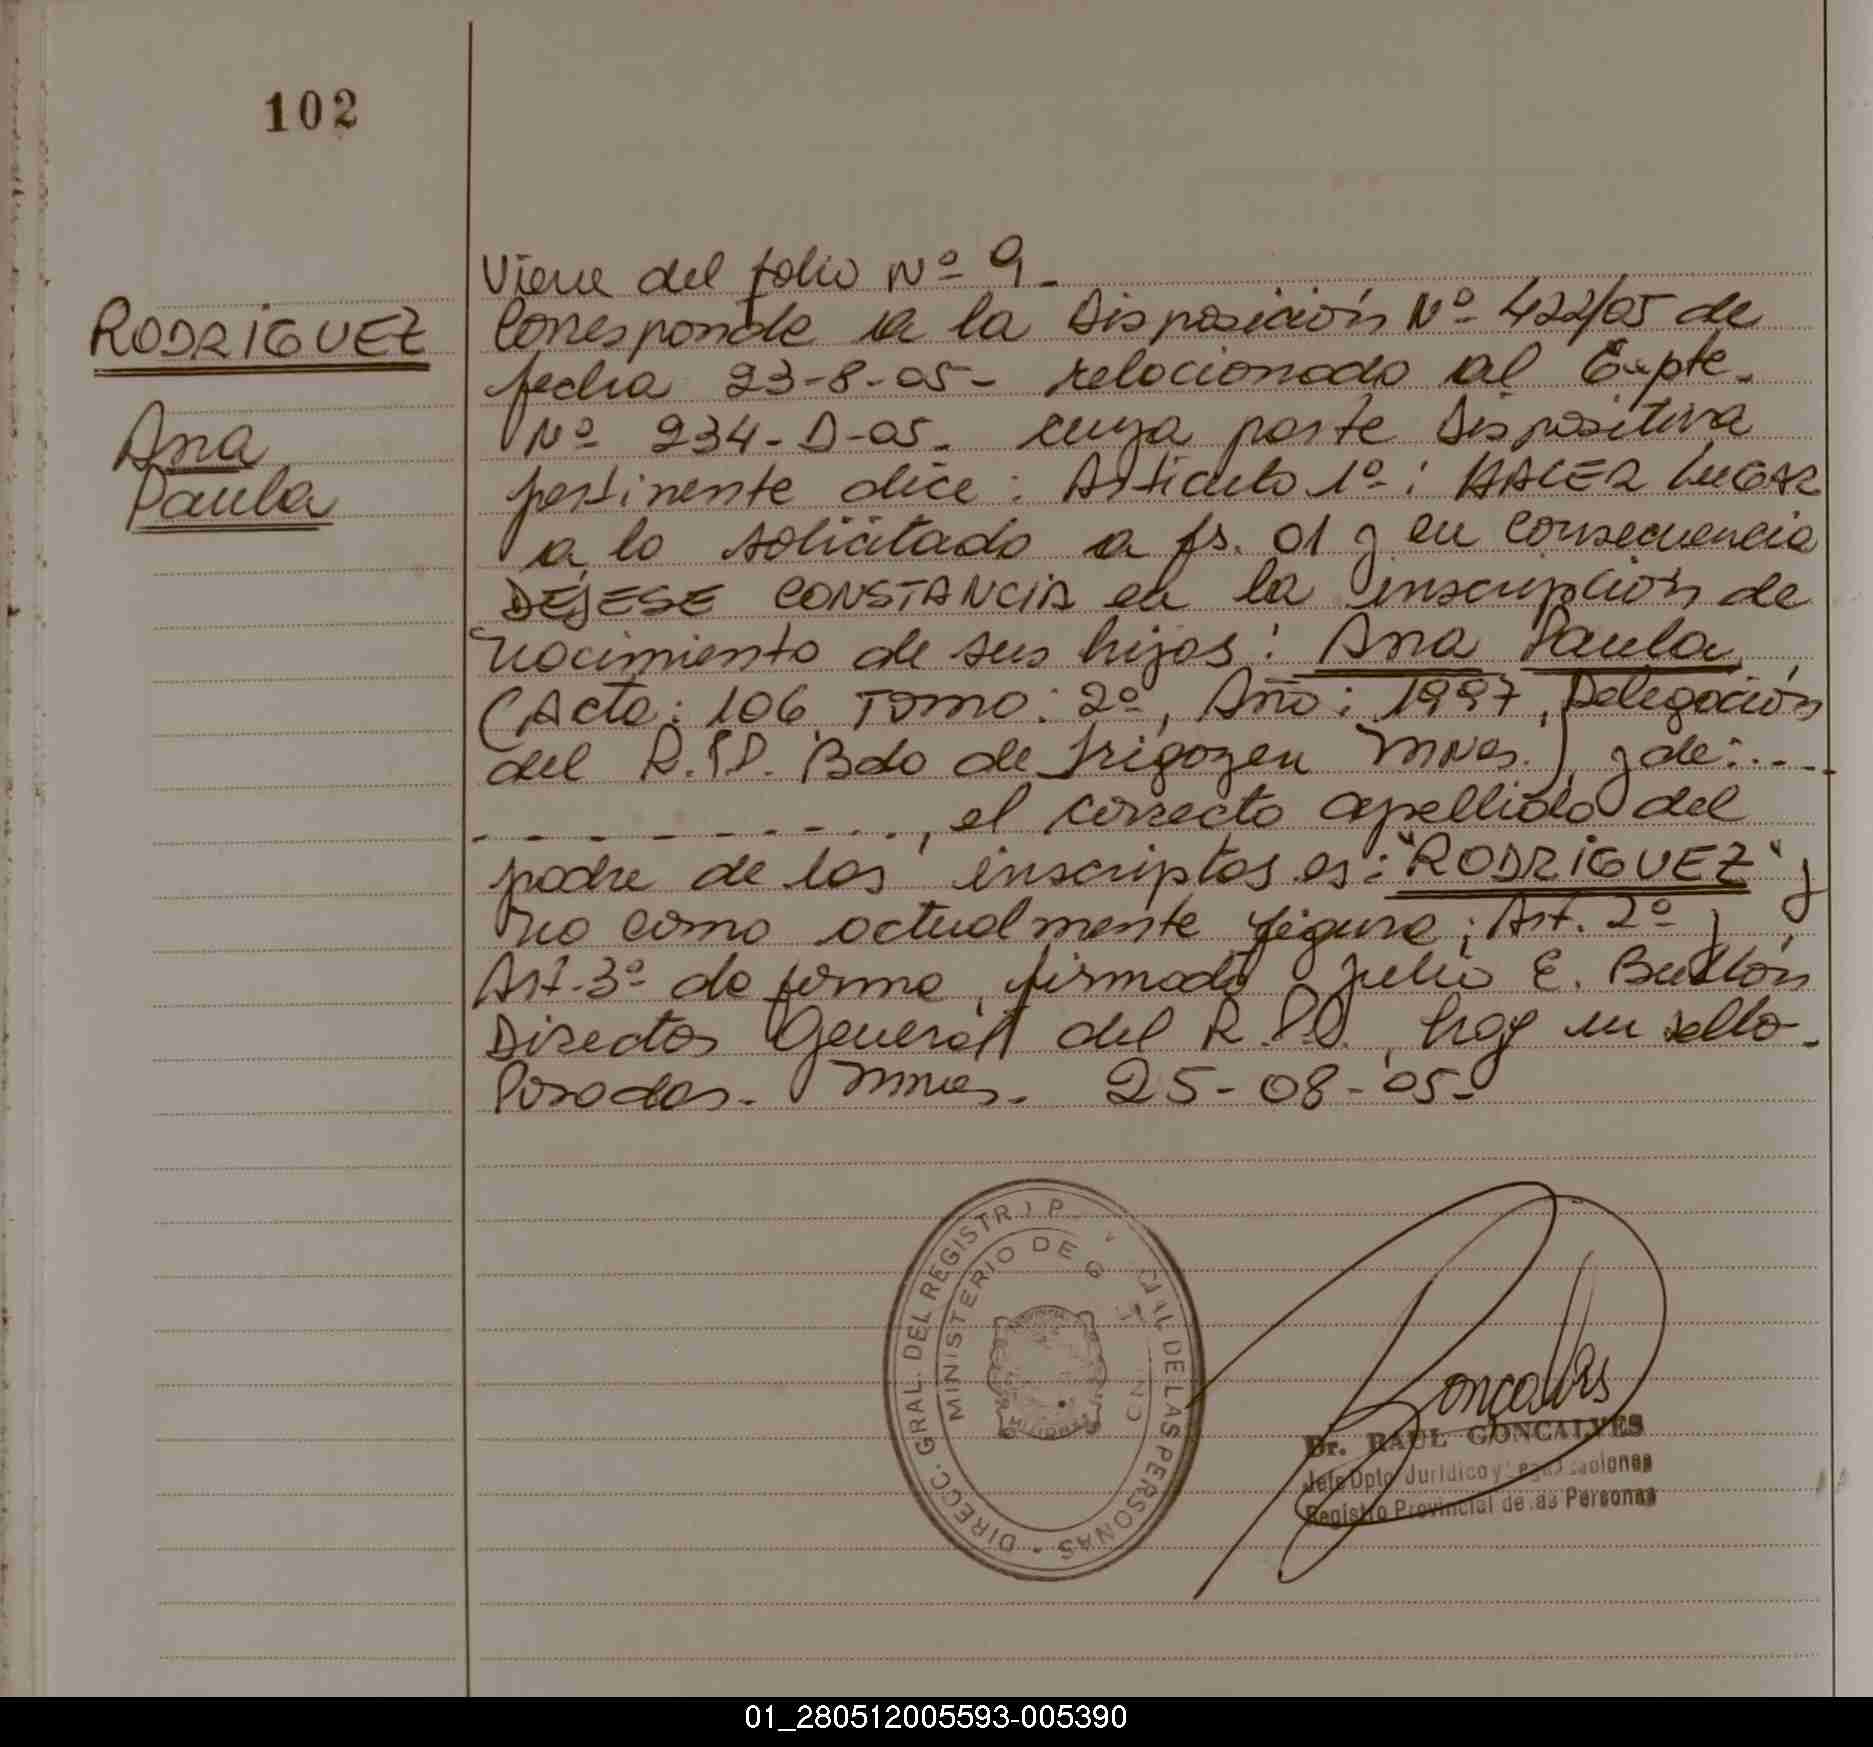 102
RODRIGUEZ
Ana
Paula
Viene del folio Nº 9-
Corresponde a la Disposición Nº 422/05 de
fecha 23-8-05- relacionado al Expte.
Nº 234-D-05- cuya parte dispositiva
pertinente dice: Artículo 1º: HACER LUGAR
a lo solicitado a fs. 01 y en consecuencia
DEJESE CONSTANCIA en la inscripción de
nacimiento de sus hijos: Ana Paula
(Acta: 106 Tomo: 2º, Año: 1997, Delegación
del R.P.P. Bdo de Irigoyen Mnes.), y de:----
- - - - - - - - - -, el correcto apellido del
padre de los inscriptos es: "RODRIGUEZ" y
no como actualmente figura; Art. 2º y
Art. 3º de forma, firmado Julio E.
Director General del R.P.P., hay un sello-
Posadas- Mnes. 25-08-05-
DIRECC. GRAL. DEL REGISTR DE LAS PERSONAS
MINISTERIO DE
Goncalves
Dr. RAUL GONCALVES
Jefe Dpto Jurídico y
Registro Provincial de las Personas
01_280512005593-005390